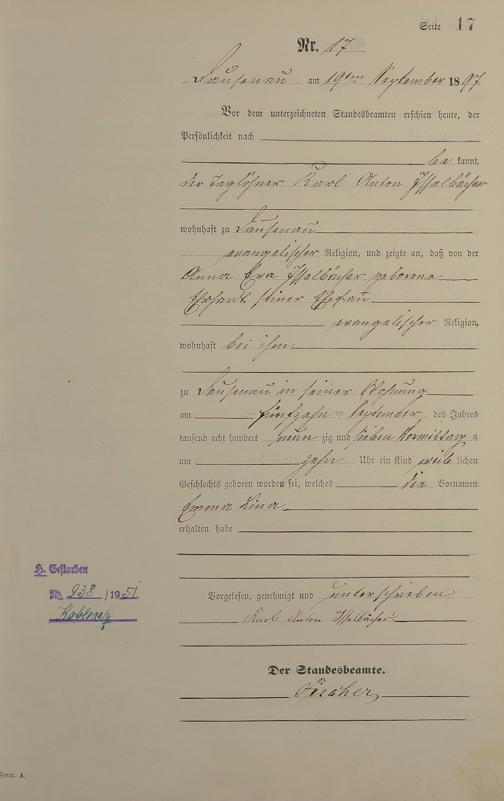 Seite 17
Nr. 17
Dausenau am 19ten September 1897
Vor dem unterzeichneten Standesbeamten erschien heute, der
Persönlichkeit nach
be kannt,
der Taglöhner Karl Anton Isselbächer
wohnhaft zu Dausenau
evangelischer Religion, und zeigte an, daß von der
Anna Eva Isselbächer geborene
Ehrhart seiner Ehefrau
evangelischer Religion,
wohnhaft bei ihm
zu Dausenau in seiner Wohnung
am fünfzehn ten September des Jahres
tausend acht hundert neun zig und sieben Vormittag s
um zehn Uhr ein Kind weib lichen
Geschlechts geboren worden sei, welches die Vornamen
Emma Lina
erhalten habe
H. Gestorben
Nr. 238 / 1951
Koblenz
Vorgelesen, genehmigt und unterschrieben
Karl Anton Isselbächer
Der Standesbeamte.
Fischer
Form. A.